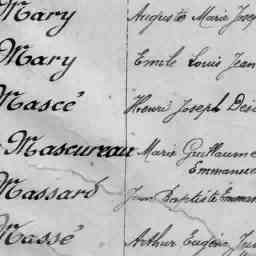 Mary Auguste Marie Josep
Mary Emile Louis Jean
Mascé Henri Joseph Dési
Mascureau Marie Guillaume
Emmanuel
Massard Jean Baptiste Emman
Massé Arthur Eugène Ju